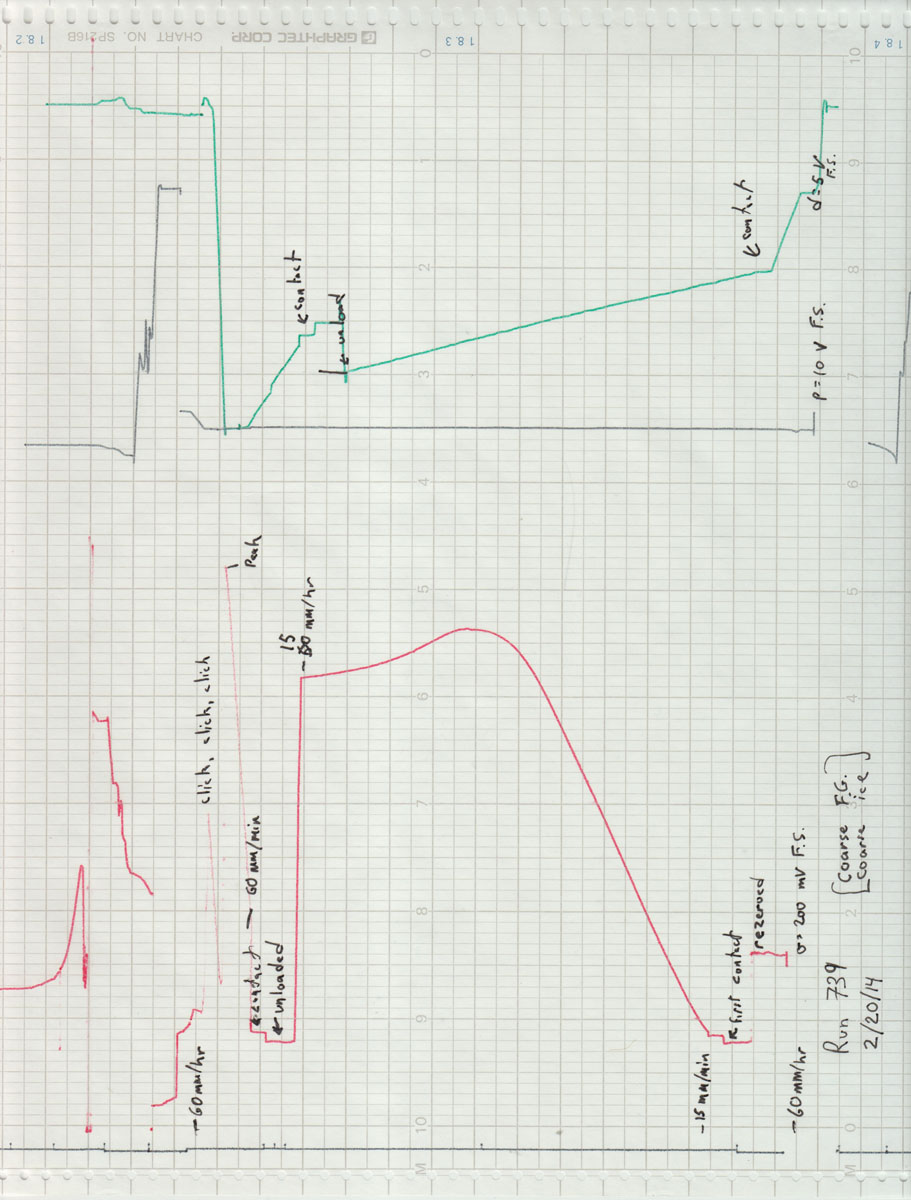 18.2
CHART NO. SP216B
GRAPHTEC CORP.
18.3
18.4
0
1
2
3
4
5
6
7
8
9
10
M
10
9
8
7
6
5
4
2
0
M
contact
unload
contact
d=5 V
F.S.
P=10 V F.S.
Peak
click, click, click
15
mm/hr
contact — 60 mm/min
unloaded
~60mm/hr
first contact
rezeroed
σ=200 mV F.S.
-15 mm/min
~60mm/hr
Run 739
2/20/14
Coarse F.G.
coarse ice